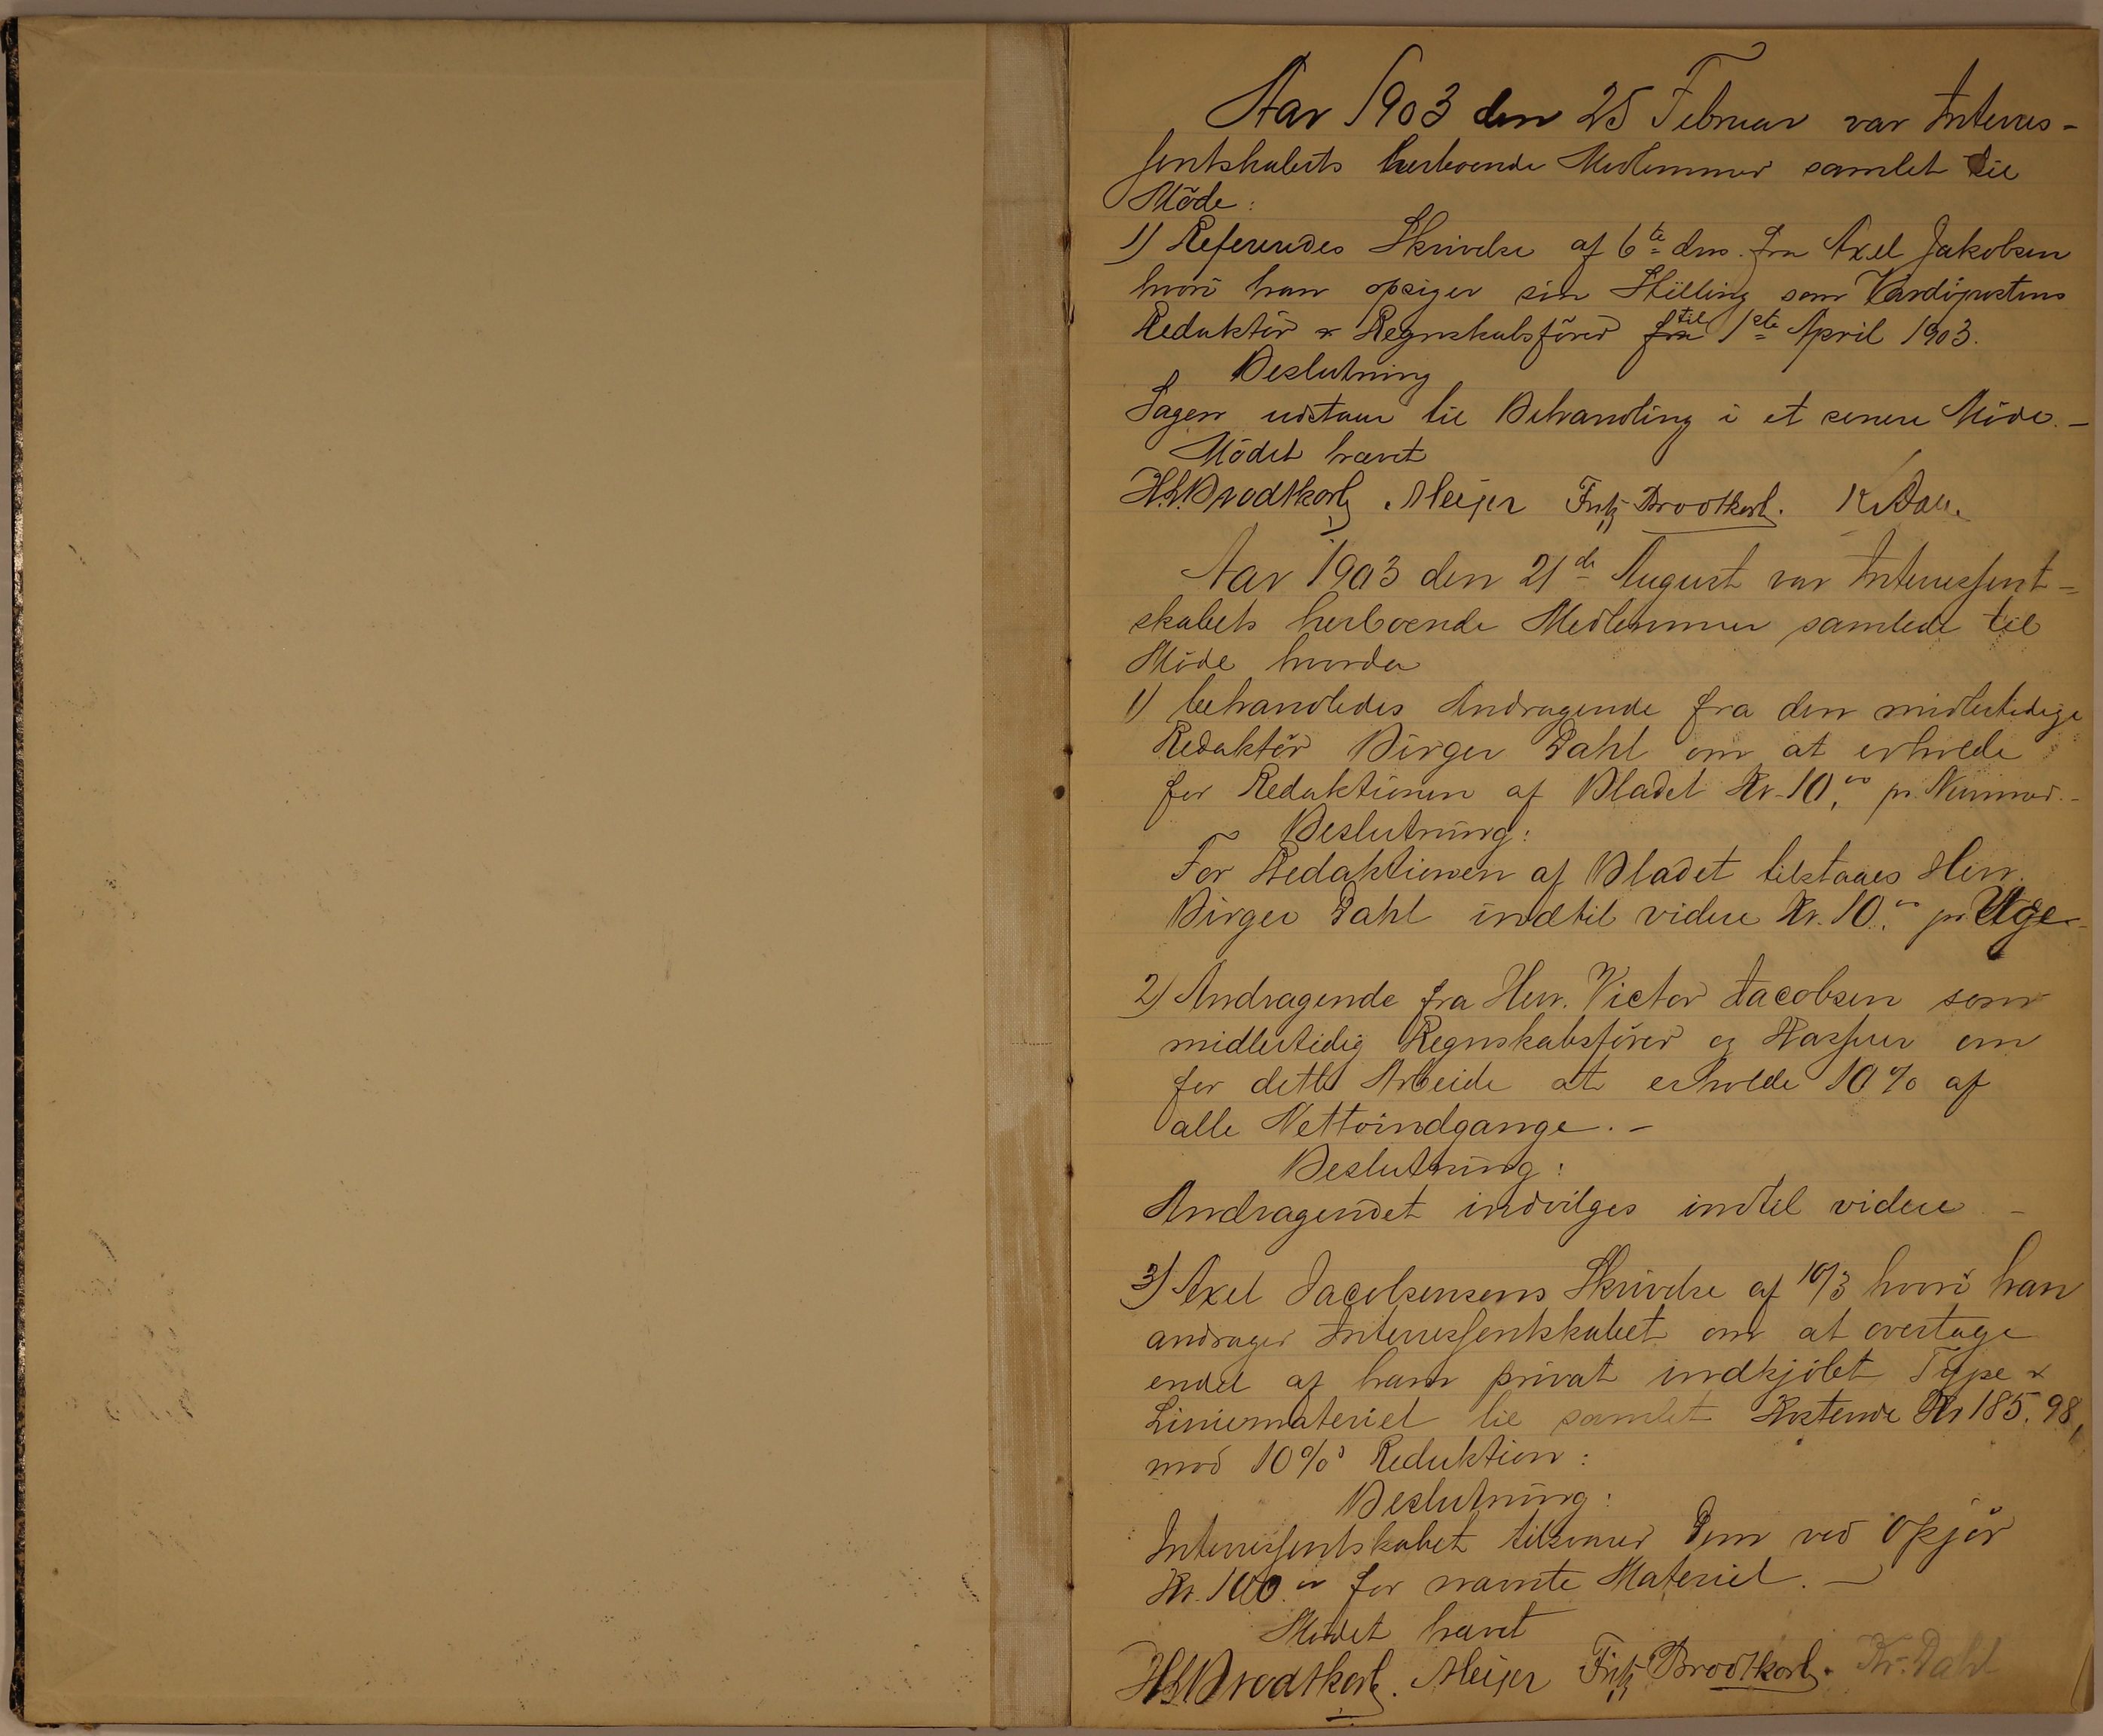 Aar 1903 den 25 Februar var Interes-
sentskabets herboende Medlemmer samlet til
Möde:
1) Refereredes Skrivelse af 6te dns. fra Axel Jakobsen
hvori han opsiger sin Stilling som Vardöpostens
Redaktör & Regnskabsförer fra til 1ste April 1903.
Beslutning
Sagen udstaar til Behandling i et senere Möde. -
Mödet hævet
H.L. Brodtkorb. Meijer Fritz Brodtkorb. K. Dahl.
Aar 1903 den 21de August var Interessent-
skabets herboende Medlemmer samlede til
Möde hvorda
1) behandledes Andragende fra den midlertidige
Redaktör Birger Dahl om at erholde
for Redaktionen af Bladet Kr. 10,00 pr. Nummer. -
Beslutning:
For Redaktionen af Bladet tilstaaes Herr.
Birger Dahl indtil videre Kr. 10.00 pr Uge -
2) Andragende fra Herr. Victor Jacobsen som
midlertidig Regnskabsförer og Kasserer om
for dette Arbeide at erholde 10% af
alle Nettoindgange. -
Beslutning:
Andragendet indvilges indtil videre -
3) Axel Jacobsensens Skrivelse af 10/3 hvori han
andrager Interessentskabet om at overtage
endel af ham privat indkjöbet Type &
Liniemateriel til samlet Kostende Kr 185.98,
mod 10% Reduktion:
Beslutning:
Interessentskabet tilsvarer Dem ved Opgjör
Kr. 100.00 for nævnte Materiel. -
Mödet hævet
H.L. Brodtkorb. Meijer Fritz Brodtkorb. Kr. Dahl